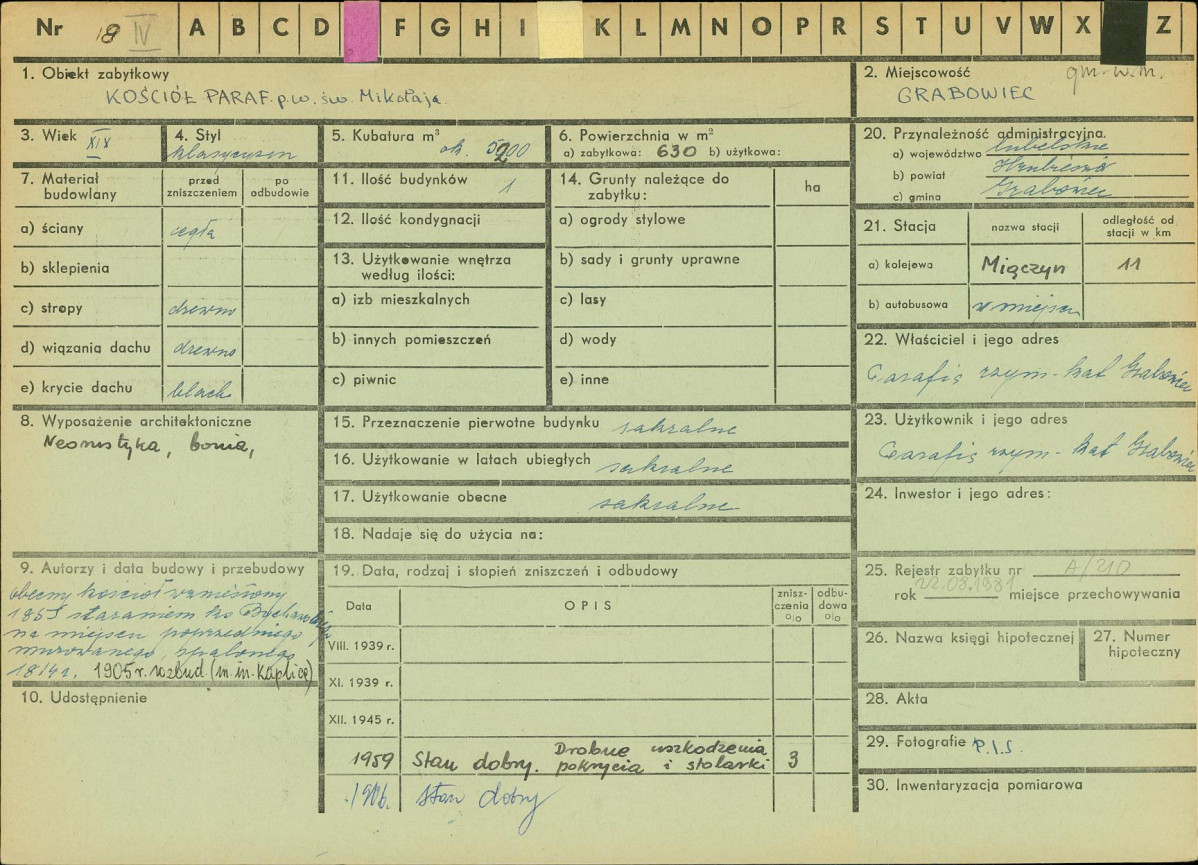 Nr 18 IV A B C D F G H I K L M N O P R S T U V W X Z
1. Obiekt zabytkowy
KOŚCIÓŁ PARAF. p.w. św. Mikołaja
2. Miejscowość
GRABOWIEC
3. Wiek XIX
4. Styl
klasycyzm
5. Kubatura m³
ok. 5200
6. Powierzchnia w m²
a) zabytkowa: 630 b) użytkowa:
20. Przynależność administracyjna.
a) województwo lubelskie
b) powiat Hrubieszów
c) gmina Grabowiec
7. Materiał budowlany
przed zniszczeniem
po odbudowie
a) ściany cegła
b) sklepienia
c) stropy drewno
d) wiązania dachu drewno
e) krycie dachu blacha
11. Ilość budynków 1
12. Ilość kondygnacji
13. Użytkowanie wnętrza
według ilości:
a) izb mieszkalnych
b) innych pomieszczeń
c) piwnic
14. Grunty należące do
zabytku:
ha
a) ogrody stylowe
b) sady i grunty uprawne
c) lasy
d) wody
e) inne
21. Stacja
nazwa stacji
odległość od
stacji w km
a) kolejowa Miączyn 11
b) autobusowa w miejscu
22. Właściciel i jego adres
Parafia rzym-kat Grabowiec
23. Użytkownik i jego adres
Parafia rzym-kat Grabowiec
24. Inwestor i jego adres:
8. Wyposażenie architektoniczne
bonia,
15. Przeznaczenie pierwotne budynku sakralne
16. Użytkowanie w latach ubiegłych sakralne
17. Użytkowanie obecne sakralne
18. Nadaje się do użycia na:
9. Autorzy i data budowy i przebudowy
obecny kościół wzniesiony
staraniem ks
na miejscu poprzedniego
murowanego, spalonego
1905 r. rozbud. (m.in. Kaplice)
10. Udostępnienie
19. Data, rodzaj i stopień zniszczeń i odbudowy
Data
OPIS
znisz-
czenia
%
odbu-
dowa
%
VIII. 1939 r.
XI. 1939 r.
XII. 1945 r.
1959 Stan dobry. Drobne uszkodzenia
pokrycia i stolarki 3
stan dobry
25. Rejestr zabytku nr A/210
rok 22.08.1981 miejsce przechowywania
26. Nazwa księgi hipotecznej
27. Numer
hipoteczny
28. Akta
29. Fotografie P.I.S.
30. Inwentaryzacja pomiarowa